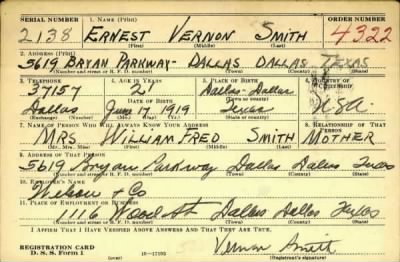 SERIAL NUMBER 1. NAME (Print) ORDER NUMBER
2138 ERNEST VERNON SMITH 4322
(First) (Middle) (Last)
2. ADDRESS (Print)
5619 BRYAN PARKWAY- DALLAS DALLAS TEXAS
(Number and street or R. F. D. number) (Town) (County) (State)
3. TELEPHONE 4. AGE IN YEARS 5. PLACE OF BIRTH 6. COUNTRY OF CITIZENSHIP
37157 21 Dallas-Dallas
DATE OF BIRTH (Town or county)
Dallas 17 1919 Texas USA
(Exchange) (Number) (Mo.) (Day) (Yr.) (State or country)
7. NAME OF PERSON WHO WILL ALWAYS KNOW YOUR ADDRESS 8. RELATIONSHIP OF THAT PERSON
MRS. WILLIAM FRED SMITH MOTHER
(Mr., Mrs., Miss) (First) (Middle) (Last)
9. ADDRESS OF THAT PERSON
5619 Bryan Parkway Dallas Dallas Texas
(Number and street or R. F. D. number) (Town) (County) (State)
10. EMPLOYER'S NAME
& Co
11. PLACE OF EMPLOYMENT OR BUSINESS
1116 Wood St Dallas Dallas Texas
(Number and street or R. F. D. number) (Town) (County) (State)
I AFFIRM THAT I HAVE VERIFIED ABOVE ANSWERS AND THAT THEY ARE TRUE.
REGISTRATION CARD
D. S. S. Form 1 Vernon Smith
(Registrant's signature)